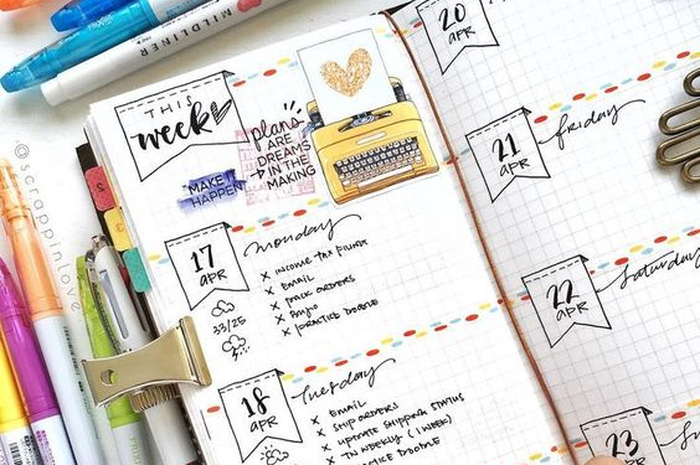 MILDLINER
THIS
week
plans
ARE
DREAMS
IN THE
MAKING
"MAKE IT
HAPPEN
17
APR
monday
x INCOME TAX
x EMAIL
x PACK ORDERS
x
x PRACTICE DOODLE
33/25
18
APR
Tuesday
x EMAIL
x SHIP ORDERS
x UPDATE SHIPPING STATUS
x TN WEEKLY (1 WEEK)
DOODLE
20
APR
21
APR
friday
22
APR
Saturday
23
@scrappinlove